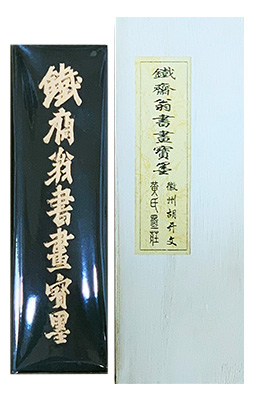 鐵齋翁書畫寳墨
鐵齋翁書畫寳墨
徽州胡开文
黃氏墨莊